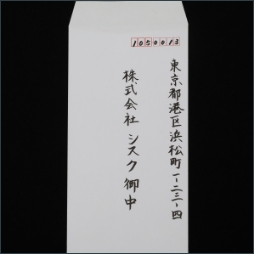 1050013
東京都港区浜松町一-二三-四
株式会社 シスク 御中